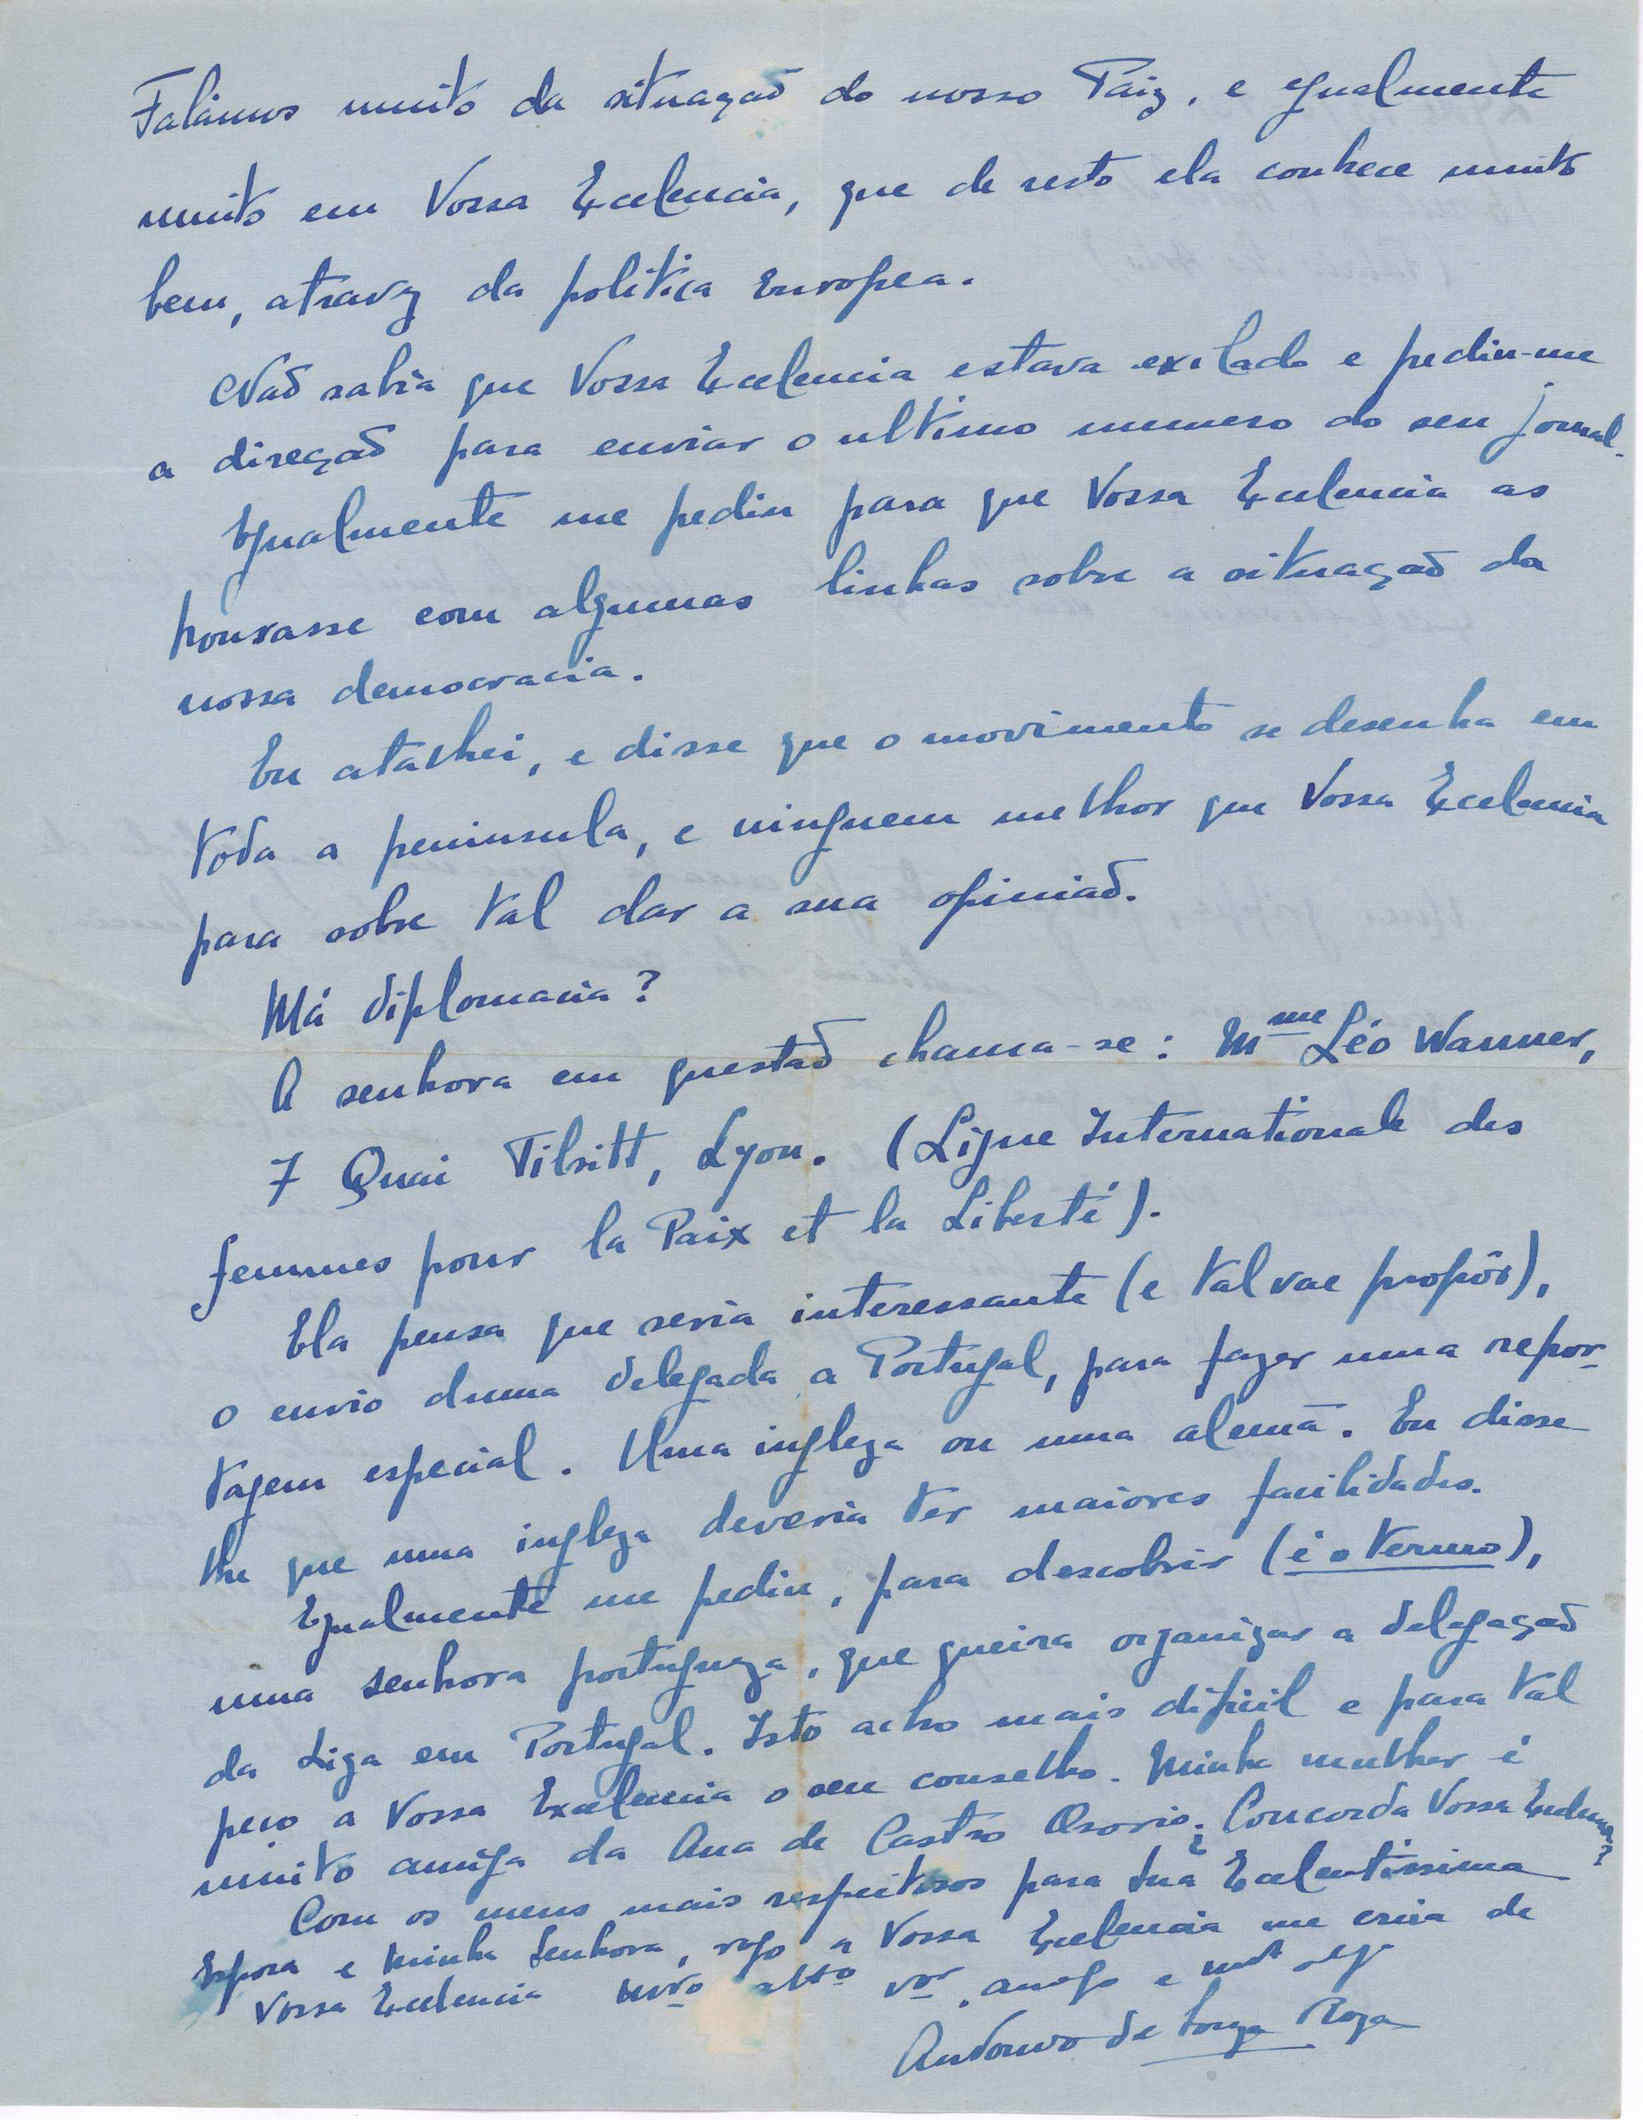 Falámos muito da situação do nosso Paiz, e egualmente
muito em Vossa Excelencia, que de resto ela conhece muito
bem, atravez da politica Europea.
Não sabia que Vossa Excelencia estava exilado e pediu-me
a direção para enviar o ultimo numero do seu jornal.
Egualmente me pediu para que Vossa Excelencia as
honrasse com algumas linhas sobre a situação da
nossa democracia.
Eu atalhei, e disse que o movimento se desenha em
toda a peninsula, e ninguem melhor que Vossa Excelencia
para sobre tal dar a sua opinião.
Má diplomacia?
A senhora em questão chama-se: Mme Léo Wanner,
7 Quai Tilsitt, Lyon. (Ligue Internationale des
femmes pour la Paix et la Liberté).
Ela pensa que seria interessante (e tal vae propôr),
o envio duma delegada a Portugal, para fazer uma repor-
tagem especial. Uma ingleza ou uma alemã. Eu disse
lhe que uma ingleza deveria ter maiores facilidades.
Egualmente me pediu, para descobrir (é o termo),
uma senhora portugueza, que queira organizar a delegação
da Liga em Portugal. Isto acho mais dificil e para tal
peço a Vossa Excelencia o seu conselho. Minha mulher é
muito amiga da Ana de Castro Osorio. Concorda Vossa Excelencia?
Com os meus mais respeitosos para Sua Excelentissima
Esposa e Minha Senhora, rogo a Vossa Excelencia me creia de
Vossa Excelencia atto vor amigo e
Antonio de Souza Roza